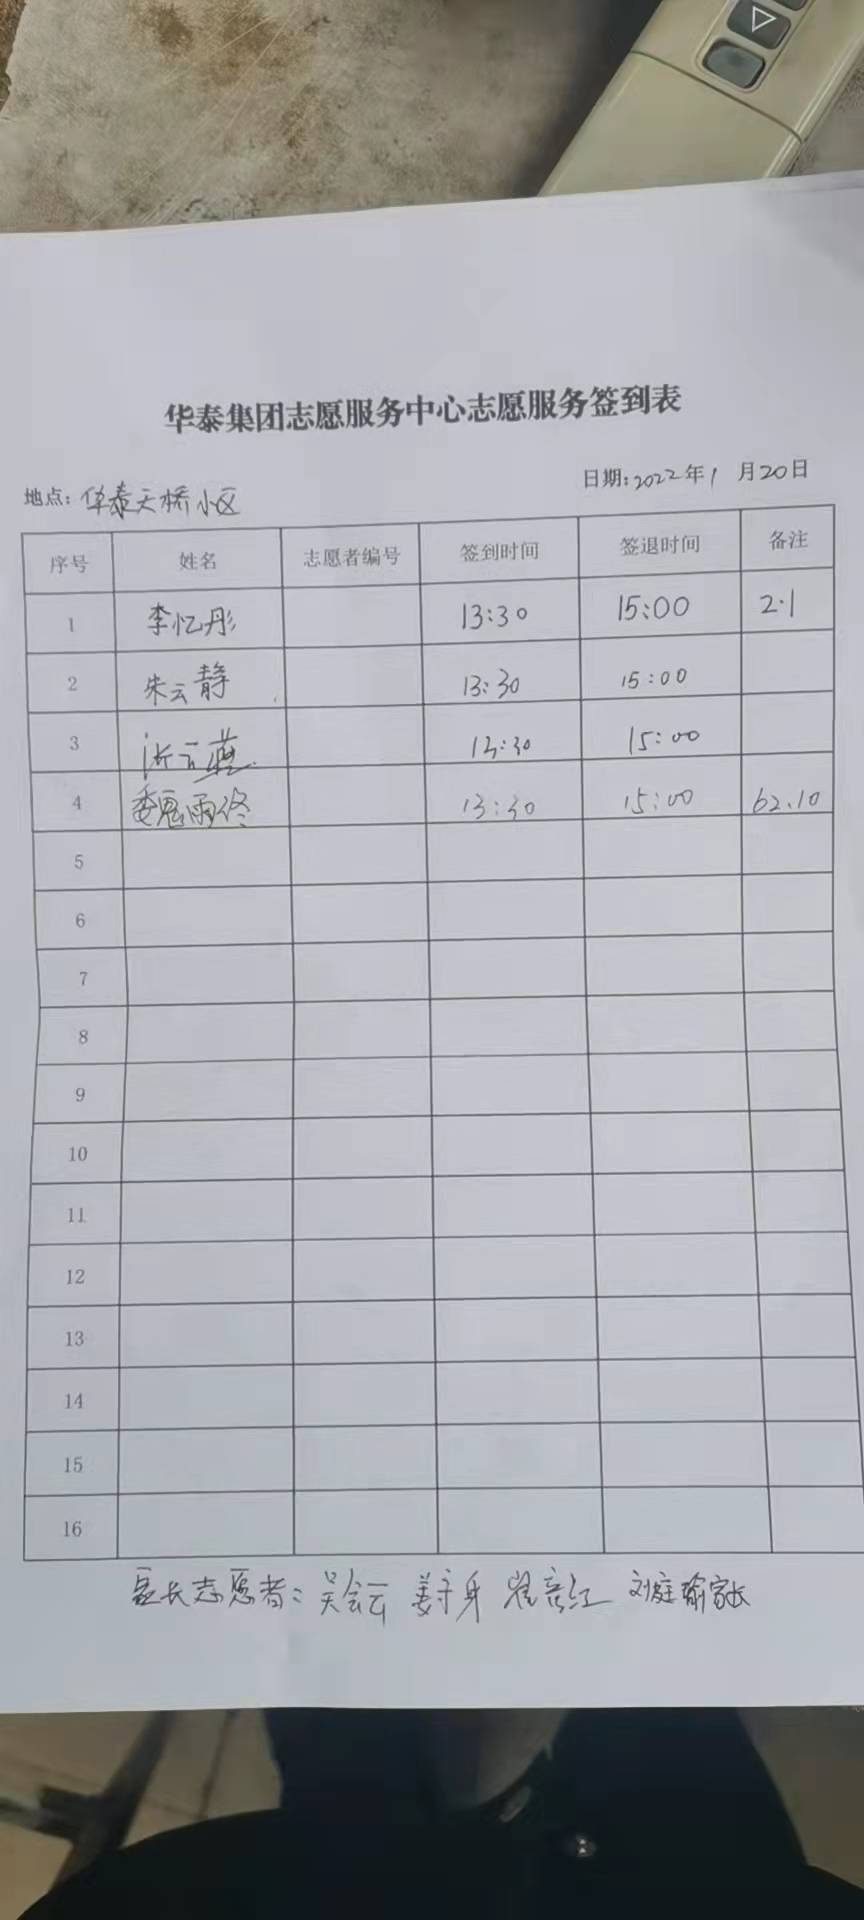 华泰集团志愿服务中心志愿服务签到表
地点：华泰天桥小区 日期：2022年1月20日
序号 姓名 志愿者编号 签到时间 签退时间 备注
1 李忆彤 13:30 15:00 2.1
2 朱云静 13:30 15:00
3 云燕 13:30 15:00
4 魏雨佟 13:30 15:00 62.10
5
6
7
8
9
10
11
12
13
14
15
16
家长志愿者：吴会云 姜守身 刘庭瑜家长